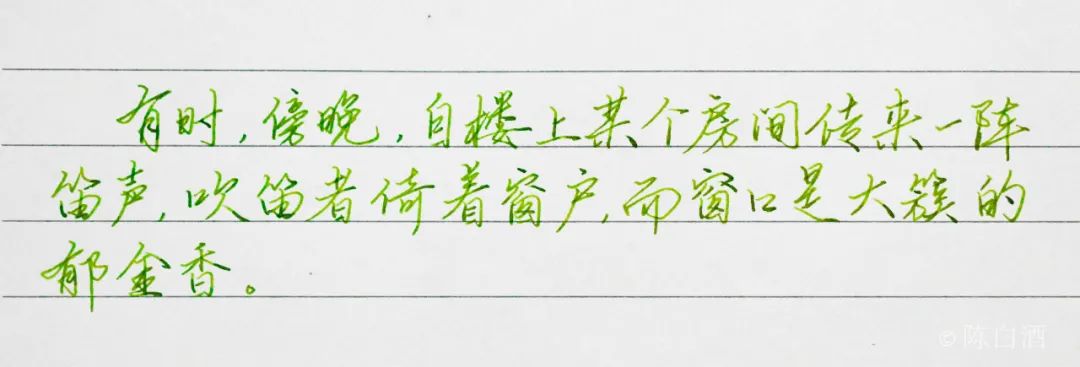 有时,傍晚,自楼上某个房间传来一阵
笛声,吹笛者倚着窗户,而窗口是大簇的
郁金香。
© 陈白酒